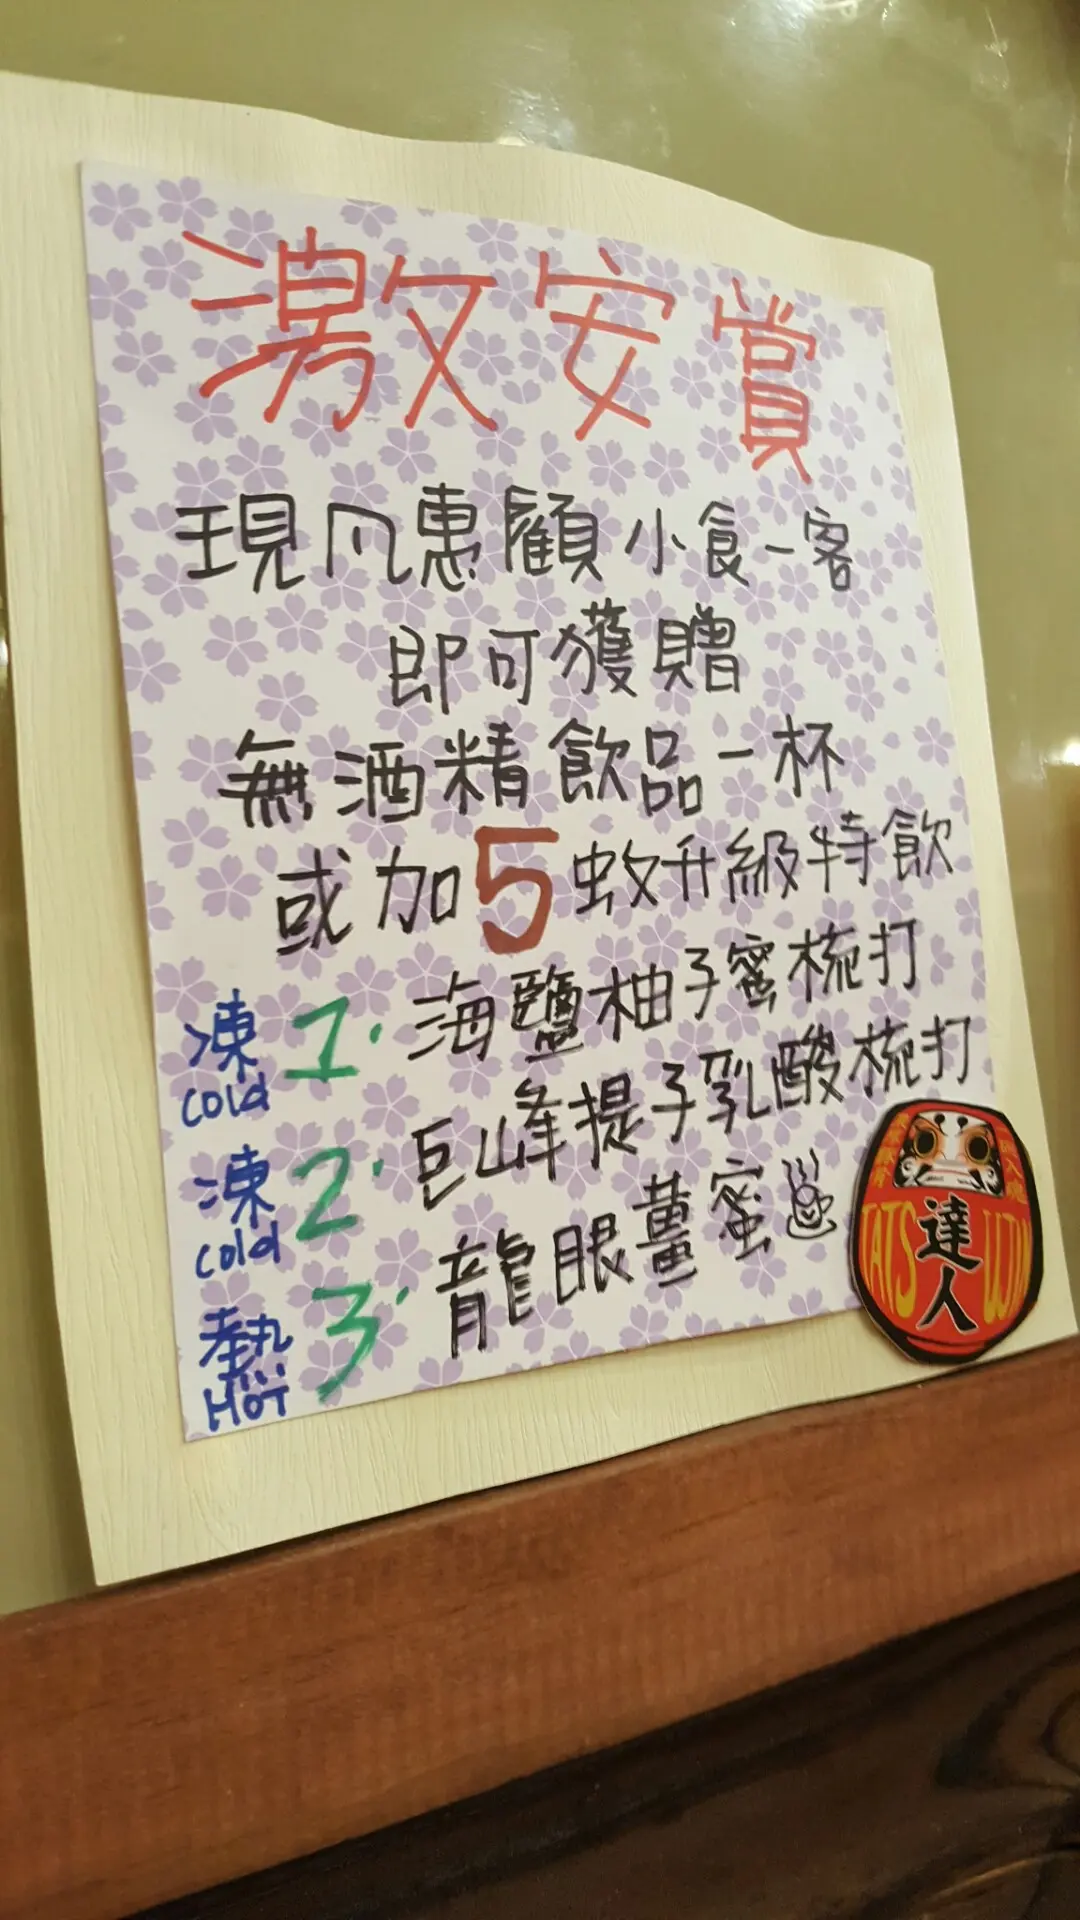 激安賞
現凡惠顧小食一客
即可獲贈
無酒精飲品一杯
或加5蚊升級特飲
凍 1. 海鹽柚子蜜梳打
cold
凍 2. 巨峰提子乳酸梳打
cold
熱 3. 龍眼薑蜜
HOT
達人
TATSUJIN